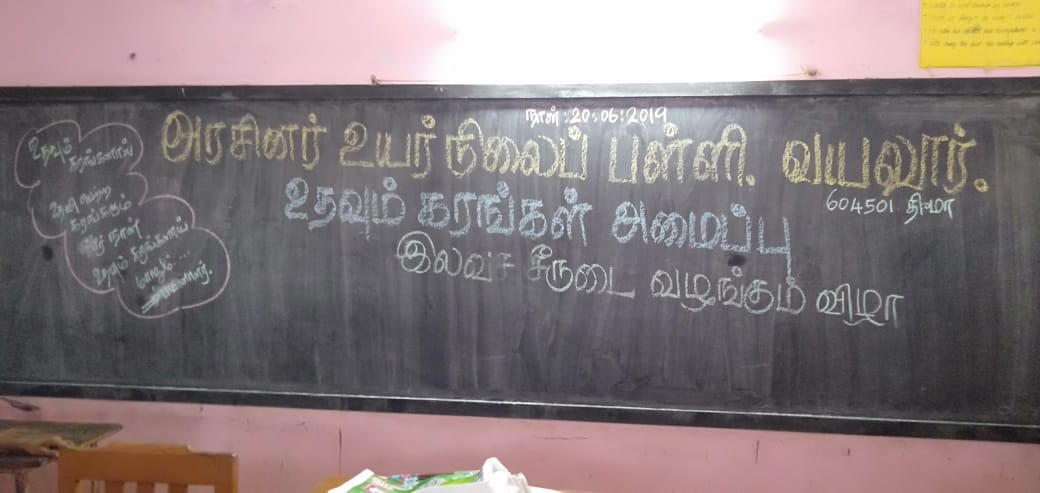 நாள்:20:06:2019
அரசினர் உயர்நிலைப் பள்ளி. வயலூர்.
604501 திமா
உதவும் கரங்கள் அமைப்பு
இலவச சீருடை வழங்கும் விழா
உதவும்
கரங்களாய்
கரங்களும்
நாள்
உதவும் கரங்களாய்